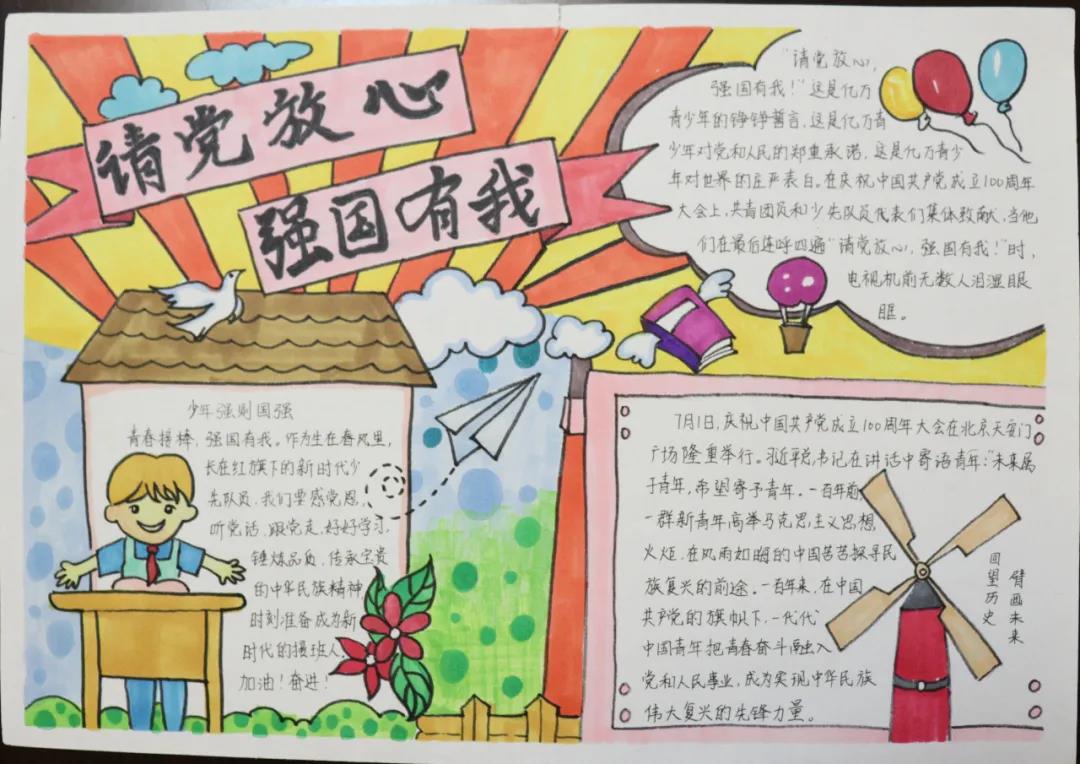 请党放心
强国有我
“请党放心，
强国有我！”这是亿万
青少年的铮铮誓言，这是亿万青
少年对党和人民的郑重承诺，这是亿万青少
年对世界的庄严表白。在庆祝中国共产党成立100周年
大会上，共青团员和少先队员代表们集体致献，当他
们在最后连呼四遍“请党放心，强国有我！”时，
电视机前无数人泪湿眼
眶。
少年强则国强
青春接棒，强国有我。作为生在春风里，
长在红旗下的新时代少
先队员，我们要感党恩，
听党话、跟党走，好好学习，
锤炼品质，传承宝贵
的中华民族精神，
时刻准备成为新
时代的接班人，
加油！奋进！
7月1日，庆祝中国共产党成立100周年大会在北京天安门
广场隆重举行。习近平总书记在讲话中寄语青年：“未来属
于青年，希望寄予青年。一百年前
一群新青年高举马克思主义思想
火炬，在风雨如晦的中国苦苦探寻民
族复兴的前途。一百年来，在中国
共产党的旗帜下，一代代
中国青年把青春奋斗融入
党和人民事业，成为实现中华民族
伟大复兴的先锋力量。
回望历史
臂画未来